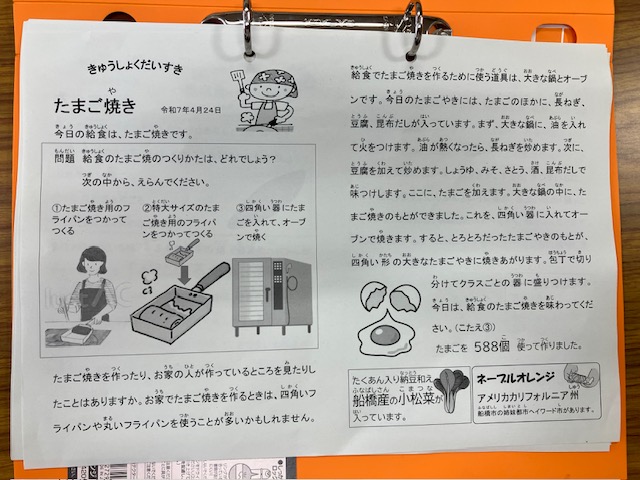 きゅうしょくだいすき
たまご焼き
令和7年4月24日
今日の給食は、たまご焼きです。
問題 給食のたまご焼のつくりかたは、どれでしょう?
次の中から、えらんでください。
①たまご焼き用のフ
ライパンをつかって
つくる
②特大サイズのたま
ご焼き用のフライパ
ンをつかってつくる
③四角い器にたま
ごを入れて、オーブ
ンで焼く
たまご焼きを作ったり、お家の人が作っているところを見たりし
たことはありますか。お家でたまご焼きを作るときは、四角いフ
ライパンや丸いフライパンを使うことが多いかもしれません。
給食でたまご焼きを作るために使う道具は、大きな鍋とオーブ
ンです。今日のたまごやきには、たまごのほかに、長ねぎ、
豆腐、昆布だしが入っています。まず、大きな鍋に、油を入れ
て火をつけます。油が熱くなったら、長ねぎを炒めます。次に、
豆腐を加えて炒めます。しょうゆ、みそ、さとう、酒、昆布だしで
味つけします。ここに、たまごを加えます。大きな鍋の中に、た
まご焼きのもとができました。これを、四角い器に入れてオー
ブンで焼きます。すると、とろとろだったたまごやきのもとが、
四角い形の大きなたまごやきに焼きあがります。包丁で切り
分けてクラスごとの器に盛りつけます。
今日は、給食のたまご焼きを味わってくだ
さい。(こたえ③)
たまごを 588個 使って作りました。
たくあん入り納豆和え、
船橋産の小松菜が
入っています。
ネーブルオレンジ
アメリカカリフォルニア州
船橋市の姉妹都市ヘイワード市があります。